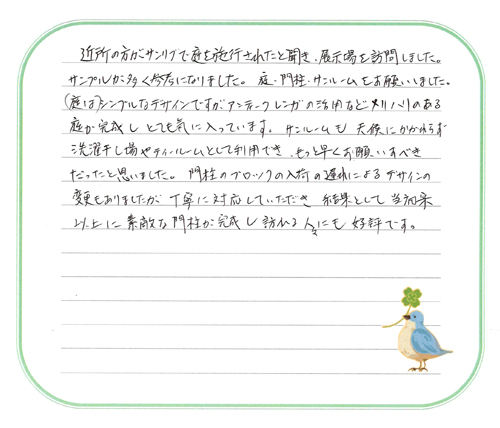 近所の方がサンリブで庭を施行されたと聞き、展示場を訪問しました。
サンプルが多く参考になりました。庭・門柱・サンルームをお願いしました。
(庭は)シンプルなデザインですがアンティークレンガの活用などメリハリのある
庭が完成しとても気に入っています。サンルームも天候にかかわらず
洗濯干し場やティールームとして利用でき、もっと早くお願いすべき
だったと思いました。門柱のブロックの入荷の遅れによるデザインの
変更もありましたが丁寧に対応していただき 結果として当初案
以上に素敵な門柱が完成し訪れる人々にも好評です。